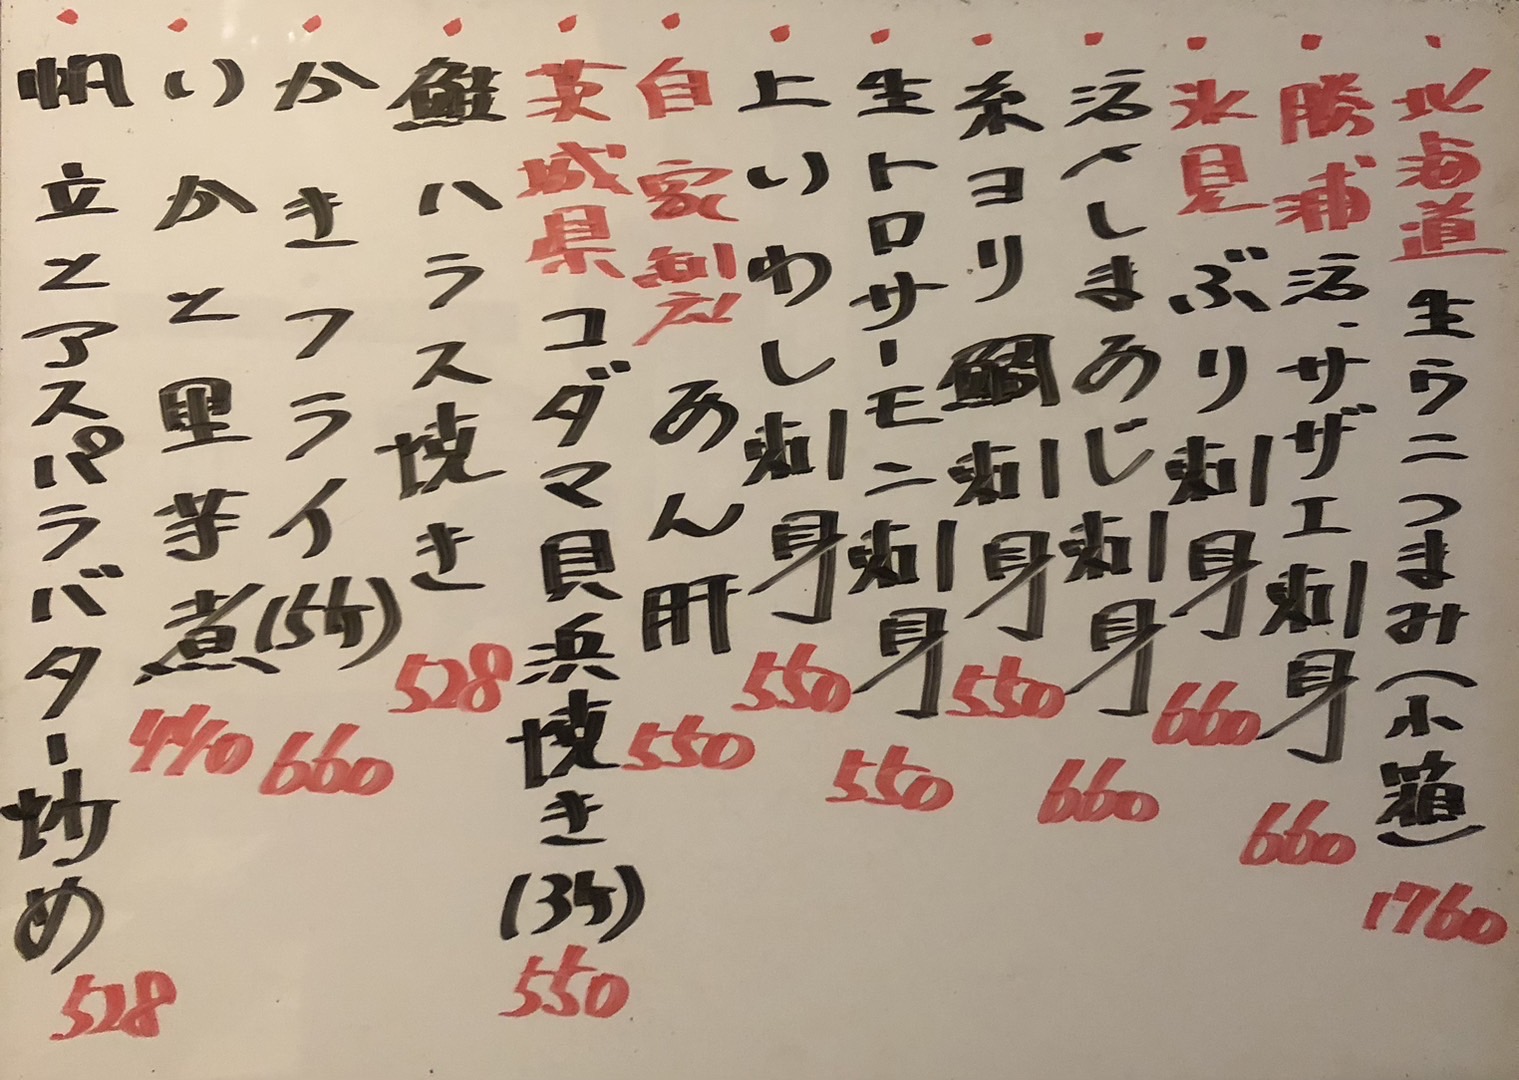 ・北海道 生ウニつまみ(小箱) 1760
・勝浦 活・サザエ刺身 660
・氷見 ぶり刺身 660
・活〆しまあじ刺身 660
・糸ヨリ鯛刺身 550
・生トロサーモン刺身 550
・上いわし刺身 550
・自家製 あん肝 550
・茨城県 コダマ貝浜焼き(3ヶ) 550
・鮭ハラス焼き 528
・かきフライ(5ヶ) 660
・いかと里芋煮 440
・帆立とアスパラバター炒め 528